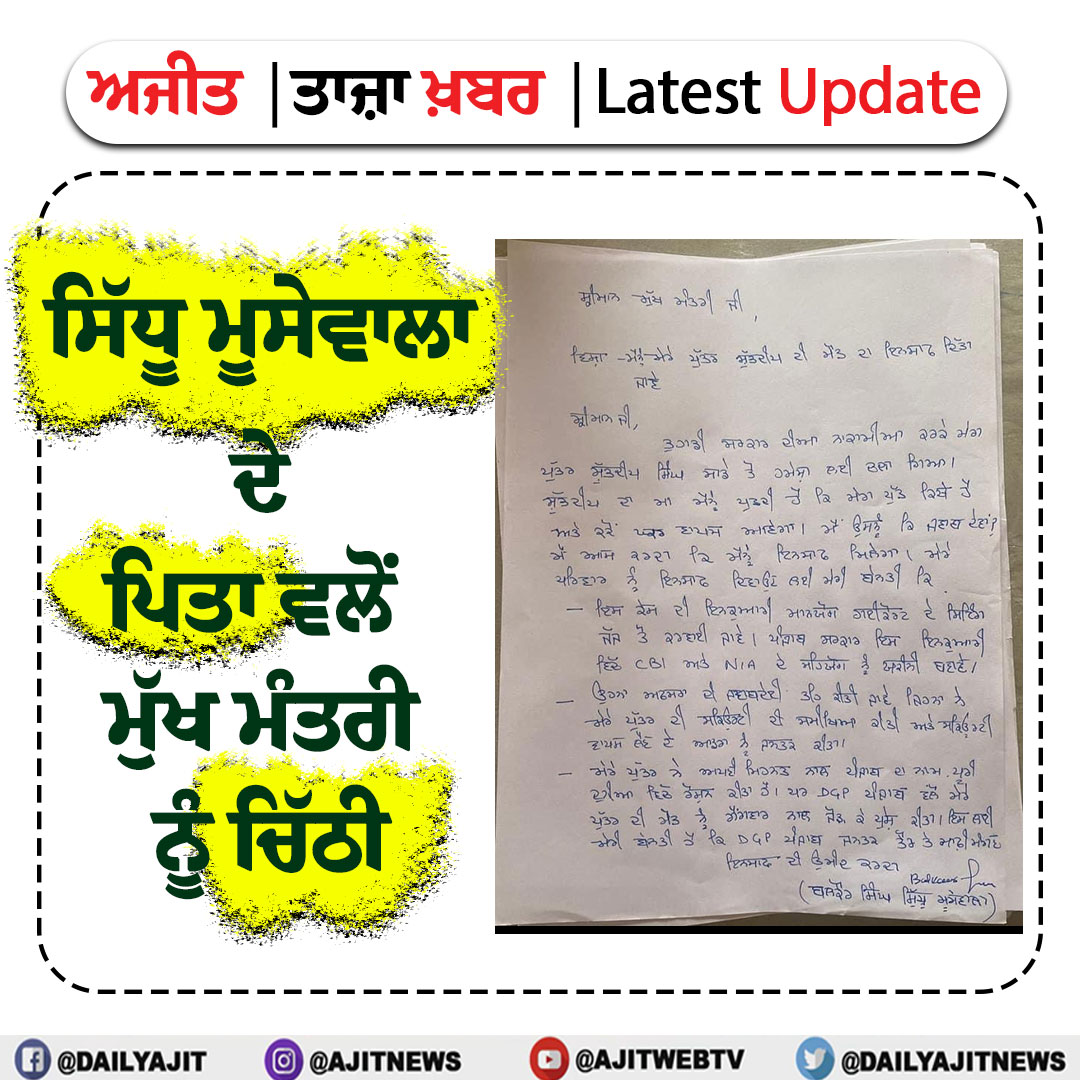 ਅਜੀਤ | ਤਾਜ਼ਾ ਖ਼ਬਰ | Latest Update
ਸਿੱਧੂ ਮੂਸੇਵਾਲਾ
ਦੇ
ਪਿਤਾ ਵਲੋਂ
ਮੁੱਖ ਮੰਤਰੀ
ਨੂੰ ਚਿੱਠੀ
ਸ਼੍ਰੀਮਾਨ ਮੁੱਖ ਮੰਤਰੀ ਜੀ,
ਵਿਸ਼ਾ - ਮੈਨੂੰ ਮੇਰੇ ਪੁੱਤਰ ਸ਼ੁੱਭਦੀਪ ਦੀ ਮੌਤ ਦਾ ਇਨਸਾਫ ਦਿੱਤਾ
ਜਾਵੇ
ਸ਼੍ਰੀਮਾਨ ਜੀ,
ਤੁਹਾਡੀ ਸਰਕਾਰ ਦੀਆ ਨਾਕਾਮੀਆ ਕਰਕੇ ਮੇਰਾ
ਪੁੱਤਰ ਸ਼ੁੱਭਦੀਪ ਸਿੰਘ ਸਾਡੇ ਤੋਂ ਹਮੇਸ਼ਾ ਲਈ ਚਲਾ ਗਿਆ।
ਸ਼ੁੱਭਦੀਪ ਦਾ ਮਾ ਮੈਨੂੰ ਪੁਛਦੀ ਹੈ ਕਿ ਮੇਰਾ ਪੁੱਤ ਕਿਥੇ ਹੈ
ਅਤੇ ਕਦੋਂ ਘਰ ਵਾਪਸ ਆਵੇਗਾ। ਮੈਂ ਉਸਨੂੰ ਕਿ ਜਵਾਬ ਦੇਵਾਂ?
ਮੈਂ ਆਸ ਕਰਦਾ ਕਿ ਮੈਨੂੰ ਇਨਸਾਫ ਮਿਲੇਗਾ। ਮੇਰੇ
ਪਰਿਵਾਰ ਨੂੰ ਇਨਸਾਫ ਦਿਵਾਉਣ ਲਈ ਮੇਰੀ ਬੇਨਤੀ ਕਿ
- ਇਸ ਕੇਸ ਦੀ ਇਨਕੁਆਰੀ ਮਾਨਯੋਗ ਹਾਈਕੋਰਟ ਦੇ ਸਿਟਿੰਗ
ਜੱਜ ਤੋਂ ਕਰਵਾਈ ਜਾਵੇ। ਪੰਜਾਬ ਸਰਕਾਰ ਇਸ ਇਨਕੁਆਰੀ
ਵਿੱਚ CBI ਅਤੇ NIA ਦੇ ਸਹਿਯੋਗ ਨੂੰ ਯਕੀਨੀ ਬਣਾਵੇ।
- ਉਹਨਾ ਅਫਸਰਾ ਦੀ ਜਵਾਬਦੇਹੀ ਤਹਿ ਕੀਤੀ ਜਾਵੇ ਜਿਹਨਾ ਨੇ
ਮੇਰੇ ਪੁੱਤਰ ਦੀ ਸਕਿਉਰਟੀ ਦੀ ਸਮੀਖਿਆ ਕੀਤੀ ਅਤੇ ਸਕਿਉਰਟੀ
ਵਾਪਸ ਲੈਣ ਦੇ ਆਡਰਾ ਨੂੰ ਜਨਤਕ ਕੀਤਾ।
- ਮੇਰੇ ਪੁੱਤਰ ਨੇ ਆਪਣੀ ਮਿਹਨਤ ਨਾਲ ਪੰਜਾਬ ਦਾ ਨਾਮ ਪੂਰੀ
ਦੁਨੀਆ ਵਿੱਚ ਰੌਸ਼ਨ ਕੀਤਾ ਹੈ। ਪਰ DGP ਪੰਜਾਬ ਵਲੋਂ ਮੇਰੇ
ਪੁੱਤਰ ਦੀ ਮੌਤ ਨੂੰ ਗੈਂਗਵਾਰ ਨਾਲ ਜੋੜ ਕੇ ਪੇਸ਼ ਕੀਤਾ। ਇਸ ਲਈ
ਮੇਰੀ ਬੇਨਤੀ ਹੈ ਕਿ DGP ਪੰਜਾਬ ਜਨਤਕ ਤੌਰ ਤੇ ਮਾਫੀ ਮੰਗਣ
ਇਨਸਾਫ ਦੀ ਉਮੀਦ ਕਰਦਾ
(ਬਲਕੌਰ ਸਿੰਘ ਸਿੱਧੂ ਮੂਸੇਵਾਲਾ)
@DAILYAJIT @AJITNEWS @AJITWEBTV @DAILYAJITNEWS